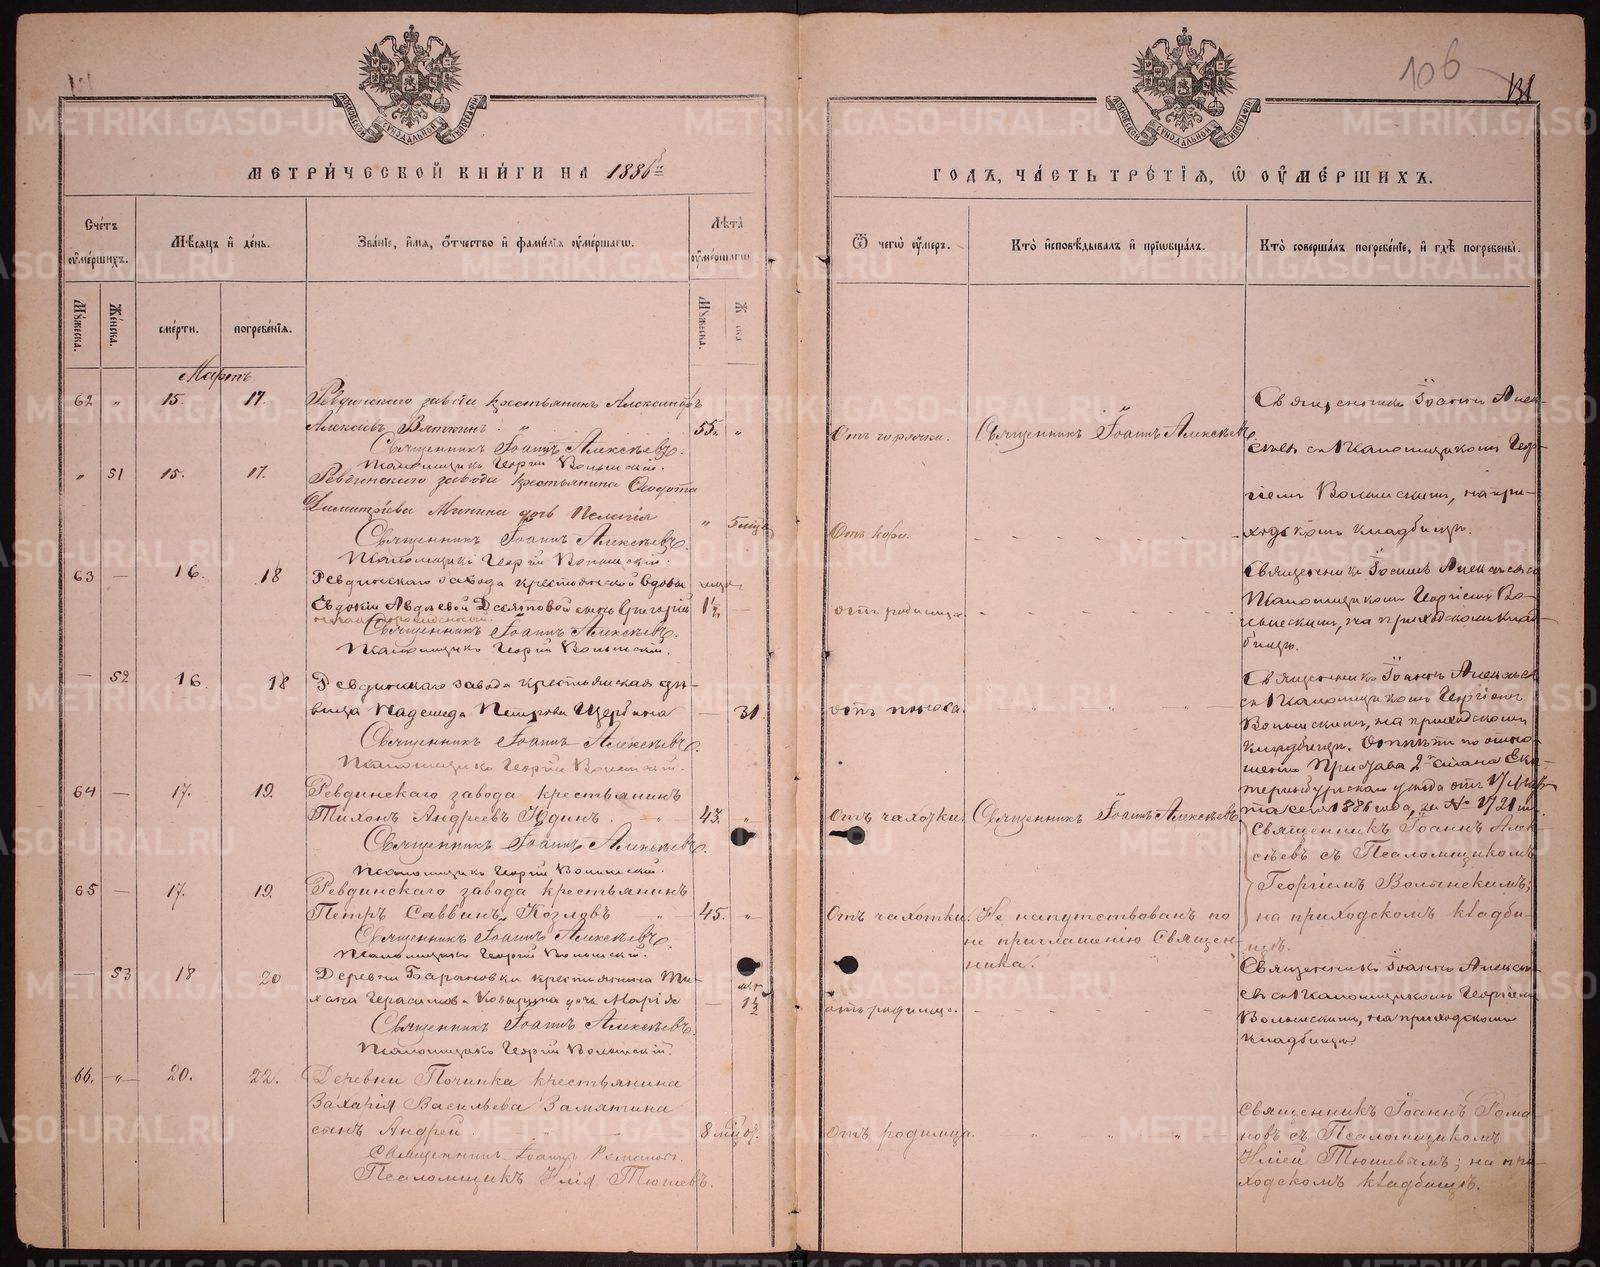 106
131
МОСКОВСКОЙ СѴНОДАЛЬНОЙ ТИПОГРАФІИ
МОСКОВСКОЙ СѴНОДАЛЬНОЙ ТИПОГРАФІИ
МЕТРИ́ЧЕСКОЙ КНИ́ГИ НА 1886й
ГОДЪ, ЧА́СТЬ ТРЕ́ТІЯ, Ѡ ОУМЕ́РШИХЪ.
Сче́тъ оумершихъ.
Мѣсяцъ и день.
Званіе, имя, отчество и фамилія оумершагѡ.
Лѣта оумершагѡ
Ѿ чегѡ оумеръ.
Кто исповѣдывалъ и пріобщалъ.
Кто совершалъ погребеніе, и гдѣ погребены.
Мужеска.
Женска.
смерти.
погребенія.
Мужеска.
Мартъ
62 „ 15. 17. Ревдинскаго завода крестьянинъ Александръ
Алексѣевъ Вяткинъ. 55. „
Священникъ Іоаннъ Алексѣевъ.
Псаломщикъ Георгій Волынскій.
Отъ горячки.
Священникъ Іоаннъ Алексѣевъ
Священникъ Іоаннъ Алек-
сѣевъ съ Псаломщикомъ Геор-
гіемъ Волынскимъ, на при-
ходскомъ кладбищѣ.
„ 51 15. 17. Ревдинскаго завода крестьянина Ѳедота
Димитріева Минина дочь Пелагія „ 5 мѣся
Священникъ Іоаннъ Алексѣевъ.
Псаломщикъ Георгій Волынскій.
Отъ кори.
63 — 16. 18 Ревдинскаго завода крестьянской вдовы
Евдокіи Авдѣевой Десятовой сынъ Григорій 1½ —
незаконнорожденный.
Священникъ Іоаннъ Алексѣевъ.
Псаломщикъ Георгій Волынскій.
отъ родимца
Священникъ Іоаннъ Алексѣевъ съ
Псаломщикомъ Георгіемъ Во-
лынскимъ, на приходскомъ клад-
бищѣ.
— 52 16. 18 Ревдинскаго завода крестьянская дѣ-
вица Надежда Петрова Щербакова — 31.
Священникъ Іоаннъ Алексѣевъ.
Псаломщикъ Георгій Волынскій.
отъ поноса.
Священникъ Іоаннъ Алексѣевъ
съ Псаломщикомъ Георгіемъ
Волынскимъ, на приходскомъ
кладбищѣ. Отпѣта по отно-
шенію Пристава 2 стана Ека-
теринбургскаго уѣзда отъ 17 Мар-
та сего 1886 года, за № 1721 м.
64 — 17. 19. Ревдинскаго завода крестьянинъ
Тихонъ Андреевъ Юдинъ. 43. „
Священникъ Іоаннъ Алексѣевъ.
Псаломщикъ Георгій Волынскій.
Отъ чахотки.
Священникъ Іоаннъ Алексѣевъ
Священникъ Іоаннъ Алек-
сѣевъ съ Псаломщикомъ
Георгіемъ Волынскимъ;
на приходскомъ кладби-
щѣ.
65 — 17. 19. Ревдинскаго завода крестьянинъ
Петръ Саввинъ Козловъ 45. „
Священникъ Іоаннъ Алексѣевъ.
Псаломщикъ Георгій Волынскій.
Отъ чахотки.
Не напутствованъ по
не приглашенію Священ-
ника.
— 53 18 20 Деревни Барановки крестьянина Ми-
хаила Герасимова дочь Марія — 1½
Священникъ Іоаннъ Алексѣевъ.
Псаломщикъ Георгій Волынскій.
отъ родимца.
Священникъ Іоаннъ Алексѣ-
евъ съ Псаломщикомъ Георгіемъ
Волынскимъ, на приходскомъ
кладбищѣ
66. „ 20. 22. Деревни Починка крестьянина
Захарія Васильева Замятина
сынъ Андрей. 8 мѣс.
Священникъ Іоаннъ Романовъ.
Псаломщикъ Илія Тюшевъ.
Отъ родимца.
Священникъ Іоаннъ Рома-
новъ съ Псаломщикомъ
Иліей Тюшевымъ; на при-
ходскомъ кладбищѣ.
METRIKI.GASO-URAL.RU